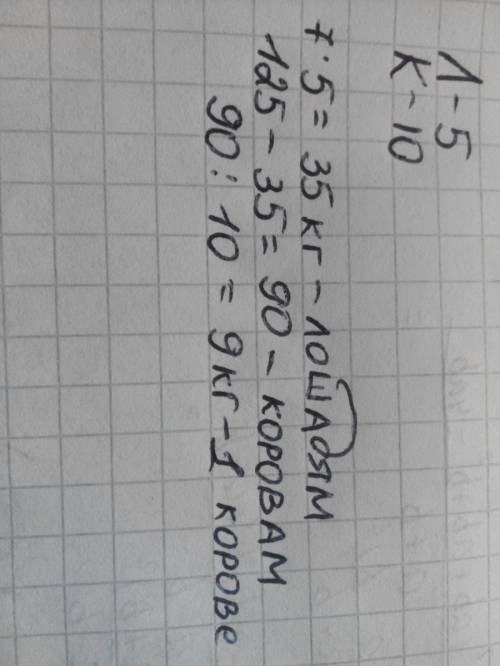 Л - 5
К - 10
7 · 5 = 35 кг - лошадям
125 - 35 = 90 - коровам
90 : 10 = 9 кг - 1 корове